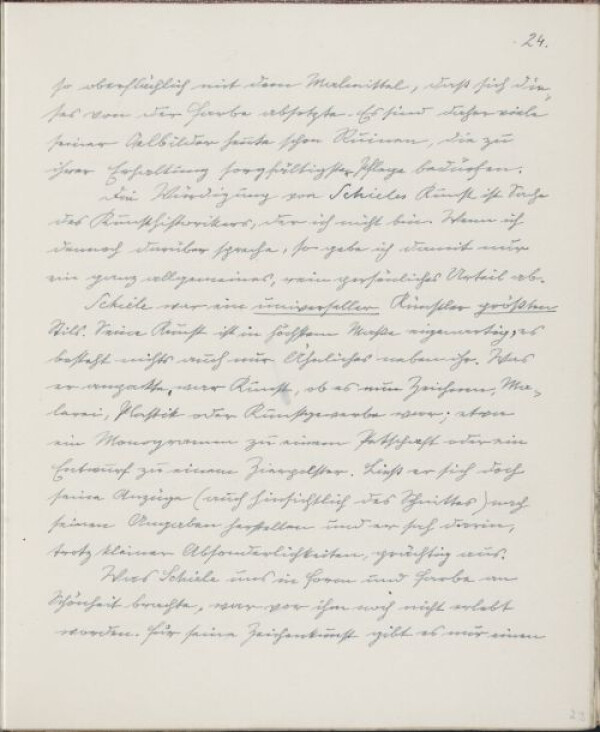 24.
so oberflächlich mit dem Malmittel, daß sich die-
ses von der Farbe absetzte. Es sind daher viele
seiner Oelbilder heute schon Ruinen, die zu
ihrer Erhaltung sorgfältigster Pflege bedürfen.
Die Würdigung von Schieles Kunst ist Sache
des Kunsthistorikers, der ich nicht bin. Wenn ich
dennoch darüber spreche, so gebe ich damit nur
ein ganz allgemeines, rein persönliches Urteil ab.
Schiele war ein universeller Künstler größten
Stils. Seine Kunst ist in höchstem Maße eigenartig, es
besteht nichts auch nur Ähnliches neben ihr. Was
er anpackte, war Kunst, ob es nun Zeichnen, Ma-
lerei, Plastik oder Kunstgewerbe war; etwa
ein Monogramm zu einem Petschaft oder ein
Entwurf zu einem Zierpolster. Ließ er sich doch
seine Anzüge (auch hinsichtlich des Schnittes) nach
seinen Angaben herstellen und er sah darin,
trotz kleiner Absonderlichkeiten, prächtig aus.
Was Schiele uns in Form und Farbe an
Schönheit brachte, war vor ihm noch nicht erlebt
worden. Für seine Zeichenkunst gibt es nur einen